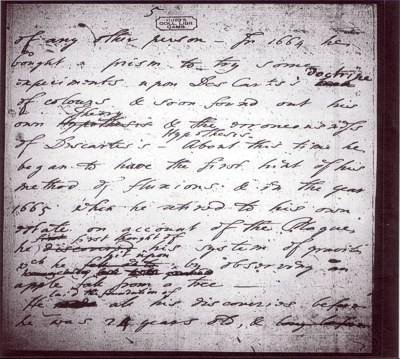 5
KING'S
COLL. LIBR.
CAMB.
of any other person - In 1664 he
bought a prism to try some
experiments upon Des Cartes's doctrine
of colours & soon found out his
own Theory & the erroneousness
of Descartes's Hypothesis - About this time he
began to have the first hint of his
method of fluxions & in the year
1665 when he retired to his own
estate on account of the Plague
he first thought of his system of gravity
wch he hit upon by observing an
apple fall from a tree -
He laid the foundation of all his discoveries before
he was 24 years old, &